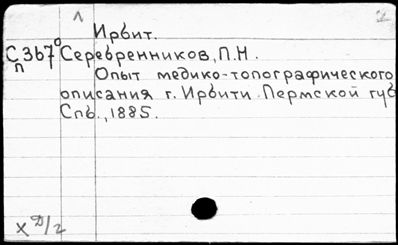 Ирбит.
С 367° Серебренников, П.Н.
п Опыт медико-топографического
описания г. Ирбити Пермской губ
Спб., 1885.
х Д/2